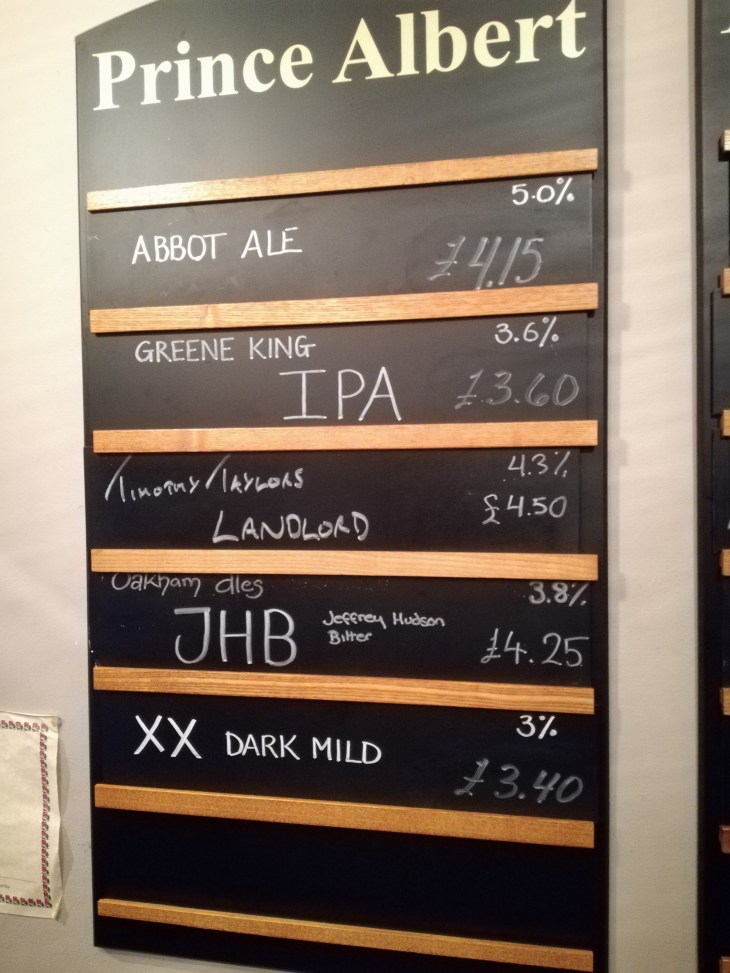 Prince Albert
5.0%
ABBOT ALE
£4.15
GREENE KING
3.6%
IPA
£3.60
TIMOTHY TAYLORS
4.3%
LANDLORD
£4.50
Oakham ales
3.8%
JHB
Jeffrey Hudson
Bitter
£4.25
XX DARK MILD
3%
£3.40